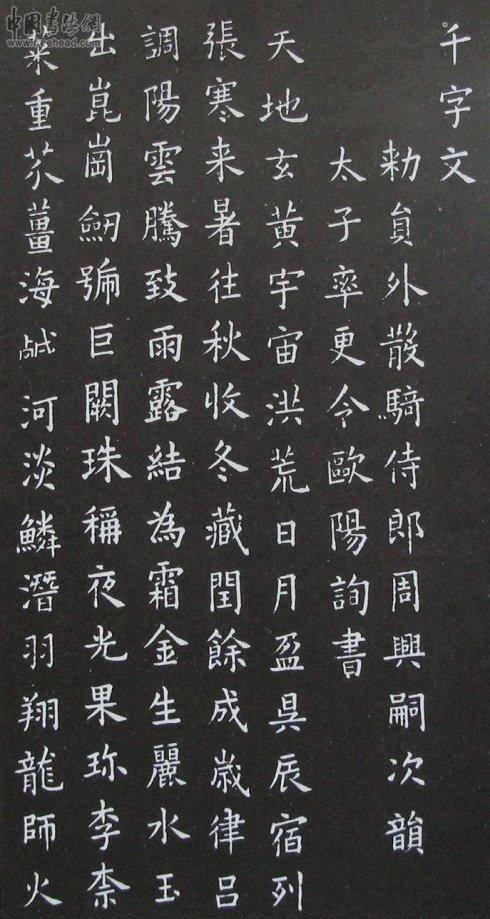 千字文
勑貟外散騎侍郎周興嗣次韻
太子率更令歐陽詢書
天地玄黃宇宙洪荒日月盈昃辰宿列
張寒来暑往秋收冬藏閏餘成嵗律吕
調陽雲騰致雨露結為霜金生麗水玉
出崑崗劒號巨闕珠稱夜光果珎李柰
菜重芥薑海鹹河淡鱗潛羽翔龍師火
中国书法网
www.freehead.com